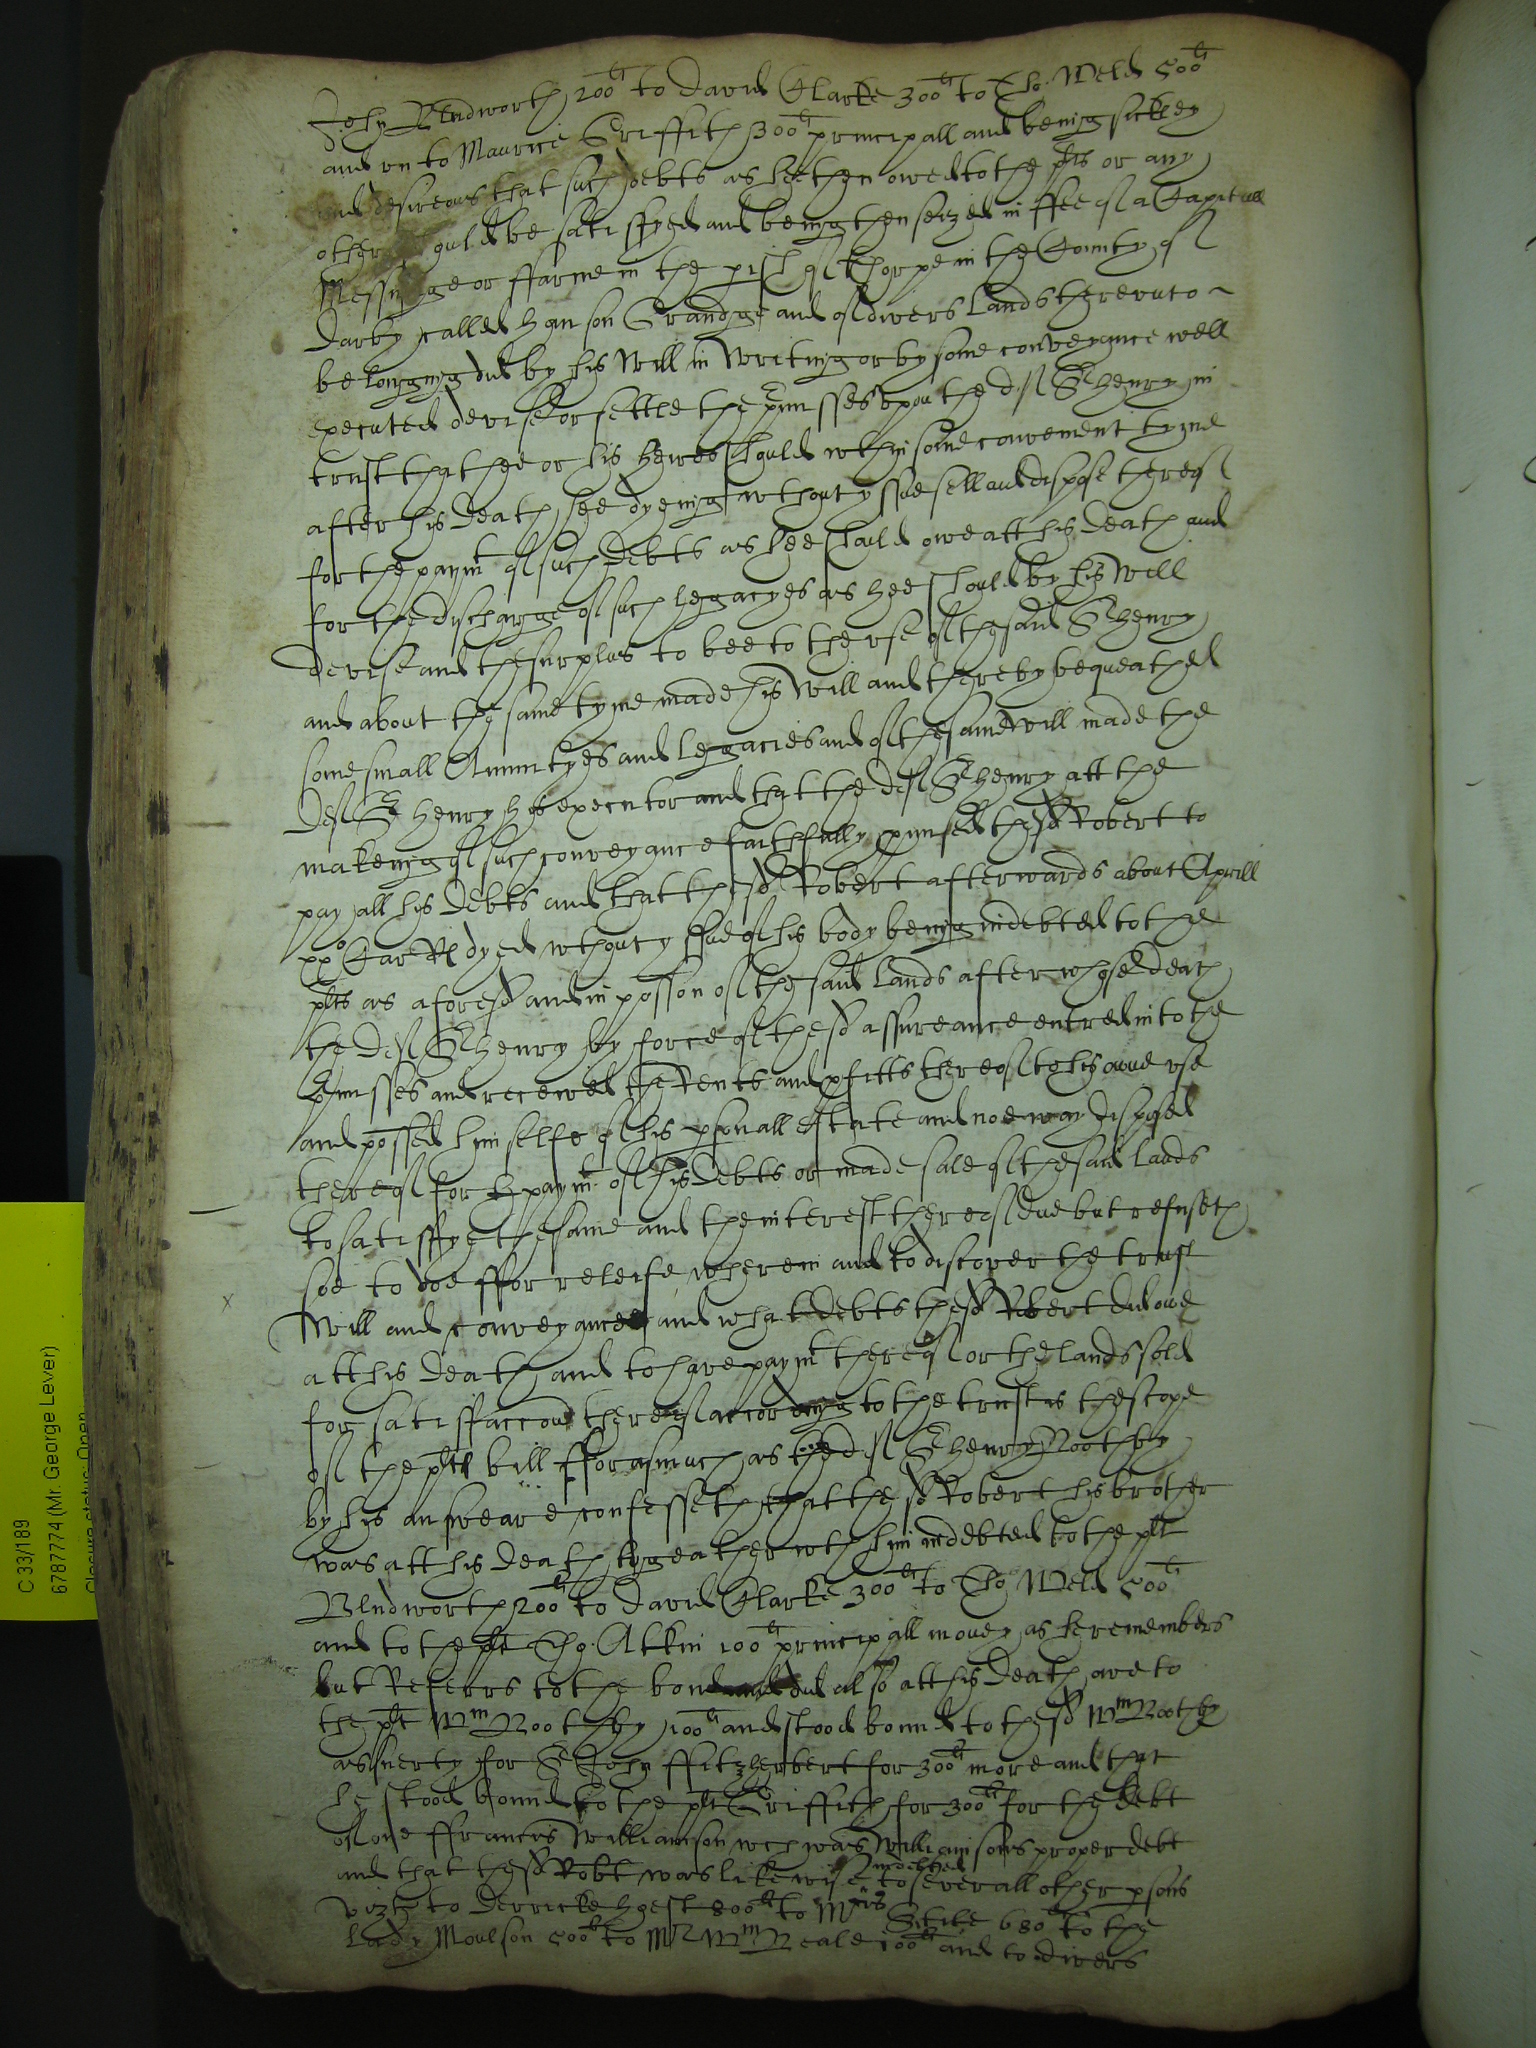 John Bludworth 200li to david Clarke 300li to Tho: Weld 500li
and vn to Maurice Griffith 300li principall and being sickley
and desireous that such debts as hee then owed to the plts or any
other should be satisfyed and being then seized in ffee of a Capitall
Messuage or ffarme in the prish of Thorpe in the County of
Darby called hanson Grandge and of divers Lands therevnto
belonging did by his Will in Writing or by some conveyance well
executed devise or settle the p̃misses vpon the deft Sr henry in
trust that hee or his heires should wthin some convenient tyme
after his death hee dyeing wthout yssue sell and dispose thereof
for the paymt of such debts as hee should owe att his death and
for the discharge of such legacyes as hee should by his Will
devise and the surplus to bee to the vse of the said Sr henry
and about the same tyme made his Will and thereby bequeathed
some small Annuityes and legacies and of the same Will made the
deft Sr henry his executor and that the deft Sr henry att the
makeing of such conveyance faithfully p̃mised the sd Robert to
pay all his debts and that the sd Robert afterwards about Aprill
xxo Car Rs dyed wthout yssue of his body being indebted to the
plts as aforesd and in possion of the said Lands after whose death
the deft Sr henry by force of the sd assureance entred into the
p̃misses and received the Rents and pfitts thereof to his owne vse
and possed himselfe of his psonall estate and noe way disposed
thereof for ye paymt of his debts or made sale of the said Lands
to satisfye the same and the interest thereof due but refuseth
soe to doe ffor releife wherein and to discover the trust
Will and conveyance and what debts the sd Robert did owe
att his death and to have paymt thereof or the lands sold
for satisfaccon thereof according to the trust is the scope
of the plts bill fforasmuch as the deft Sr henry Boothby
by his answeare confesseth that the sd Robert his brother
was att his death togeather wth him indebted to the plt
Bludworth 200li to david Clarke 300li to Tho: Weld 500li
and to the plt Tho: Atkin 100li principall money as he remembers
but Referrs to the bond and did also att his death owe to
the plt Wm Boothby 100li and stood bound to the sd Wm Boothby
as suerty for Sr John ffitzherbert for 300li more and that
he stood bound to the plt Griffith for 300li for the debt
of one ffrancis Williamson wch was Williamsons proper debt
and that the sd Robt was likewise indebted to severall other psons
vizt to derricke hoest 800li to Mrs 680li to the
Lady Moulson 500li to Mr Wm Beale 100li and to divers
C 33/189
6787774 (Mr. George Lever)
Closure status: Open